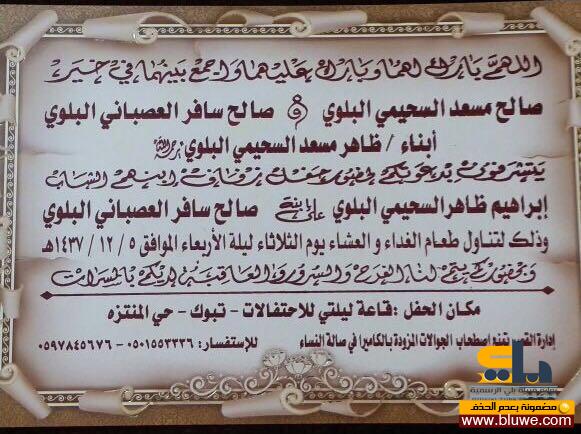 اللهم بارك لهما وبارك عليهما واجمع بينهما في خير
صالح مسعد السحيمي البلوي و صالح سافر العصباني البلوي
أبناء / ظاهر مسعد السحيمي البلوي رحمه الله
يتشرفون بدعوتكم لحضور حفل زفاف ابنهم الشاب
إبراهيم ظاهر السحيمي البلوي على ابنة صالح سافر العصباني البلوي
وذلك لتناول طعام الغداء و العشاء يوم الثلاثاء ليلة الأربعاء الموافق ١٤٣٧/١٢/٥هـ
وبحضوركم يتم لنا الفرح والسرور والعاقبة لديكم بالمسرات
مكان الحفل : قاعة ليلتي للاحتفالات - تبوك - حي المنتزه
إدارة القصر تمنع اصطحاب الجوالات المزودة بالكاميرا في صالة النساء للإستفسار: ٠٥٠١٥٥٣٣٣٦ - ٠٥٩٧٨٤٥٦٧٦
مضمونة بعدم الحذف
www.bluwe.com